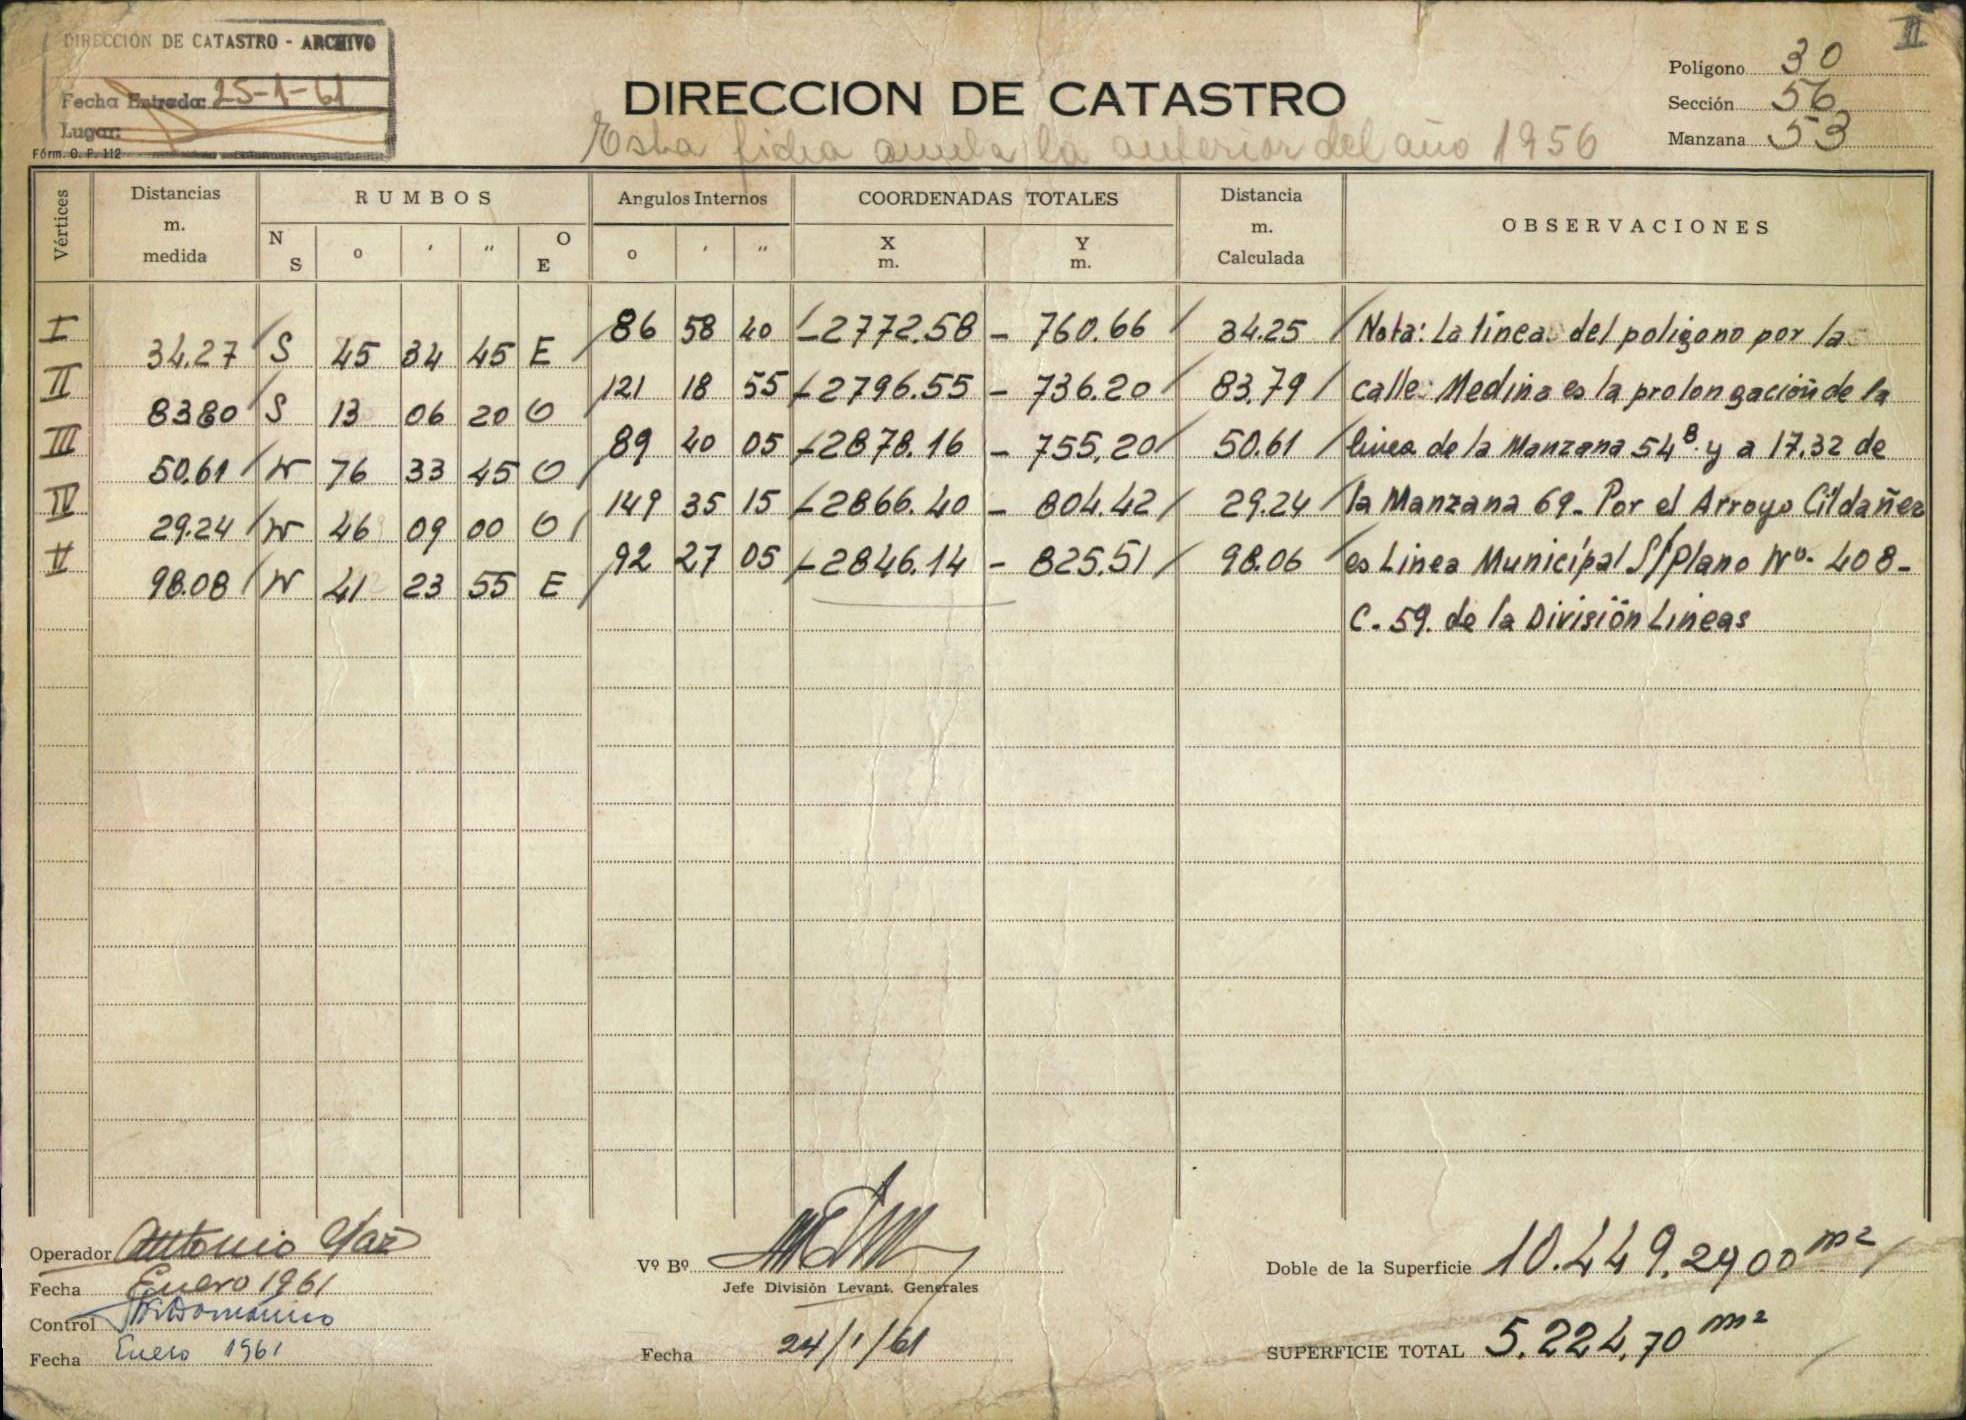 II
DIRECCION DE CATASTRO - ARCHIVO
Fecha Entrada: 25-1-61
Lugar:
Fórm. O. P. 112
DIRECCION DE CATASTRO
Esta ficha anula la anterior del año 1956
Polígono 30
Sección 56
Manzana 53
Vértices
Distancias m. medida
RUMBOS
N S o ' " O E
Angulos Internos
o ' "
COORDENADAS TOTALES
X m. Y m.
Distancia m. Calculada
OBSERVACIONES
I 86 58 40 -2772.58 - 760.66 34.25 Nota: La linea del poligono por la
34.27 S 45 34 45 E
II 121 18 55 -2796.55 - 736.20 83.79 calle: Medina es la prolongación de la
83.80 S 13 06 20 O
III 89 40 05 -2878.16 - 755.20 50.61 linea de la Manzana 54B. y a 17.32 de
50.61 N 76 33 45 O
IV 149 35 15 -2866.40 - 804.42 29.24 la Manzana 69. Por el Arroyo Cildañez
29.24 N 46 09 00 O
V 92 27 05 -2846.14 - 825.51 98.06 es Linea Municipal S/Plano Nº. 408-
98.08 N 41 23 55 E
C. 59. de la División Lineas
Operador Antonio
Fecha Enero 1961
Control
Fecha Enero 1961
Vº Bº
Jefe División Levant. Generales
Fecha 24/1/61
Doble de la Superficie 10.449,2900 m2
SUPERFICIE TOTAL 5.224,70 m2